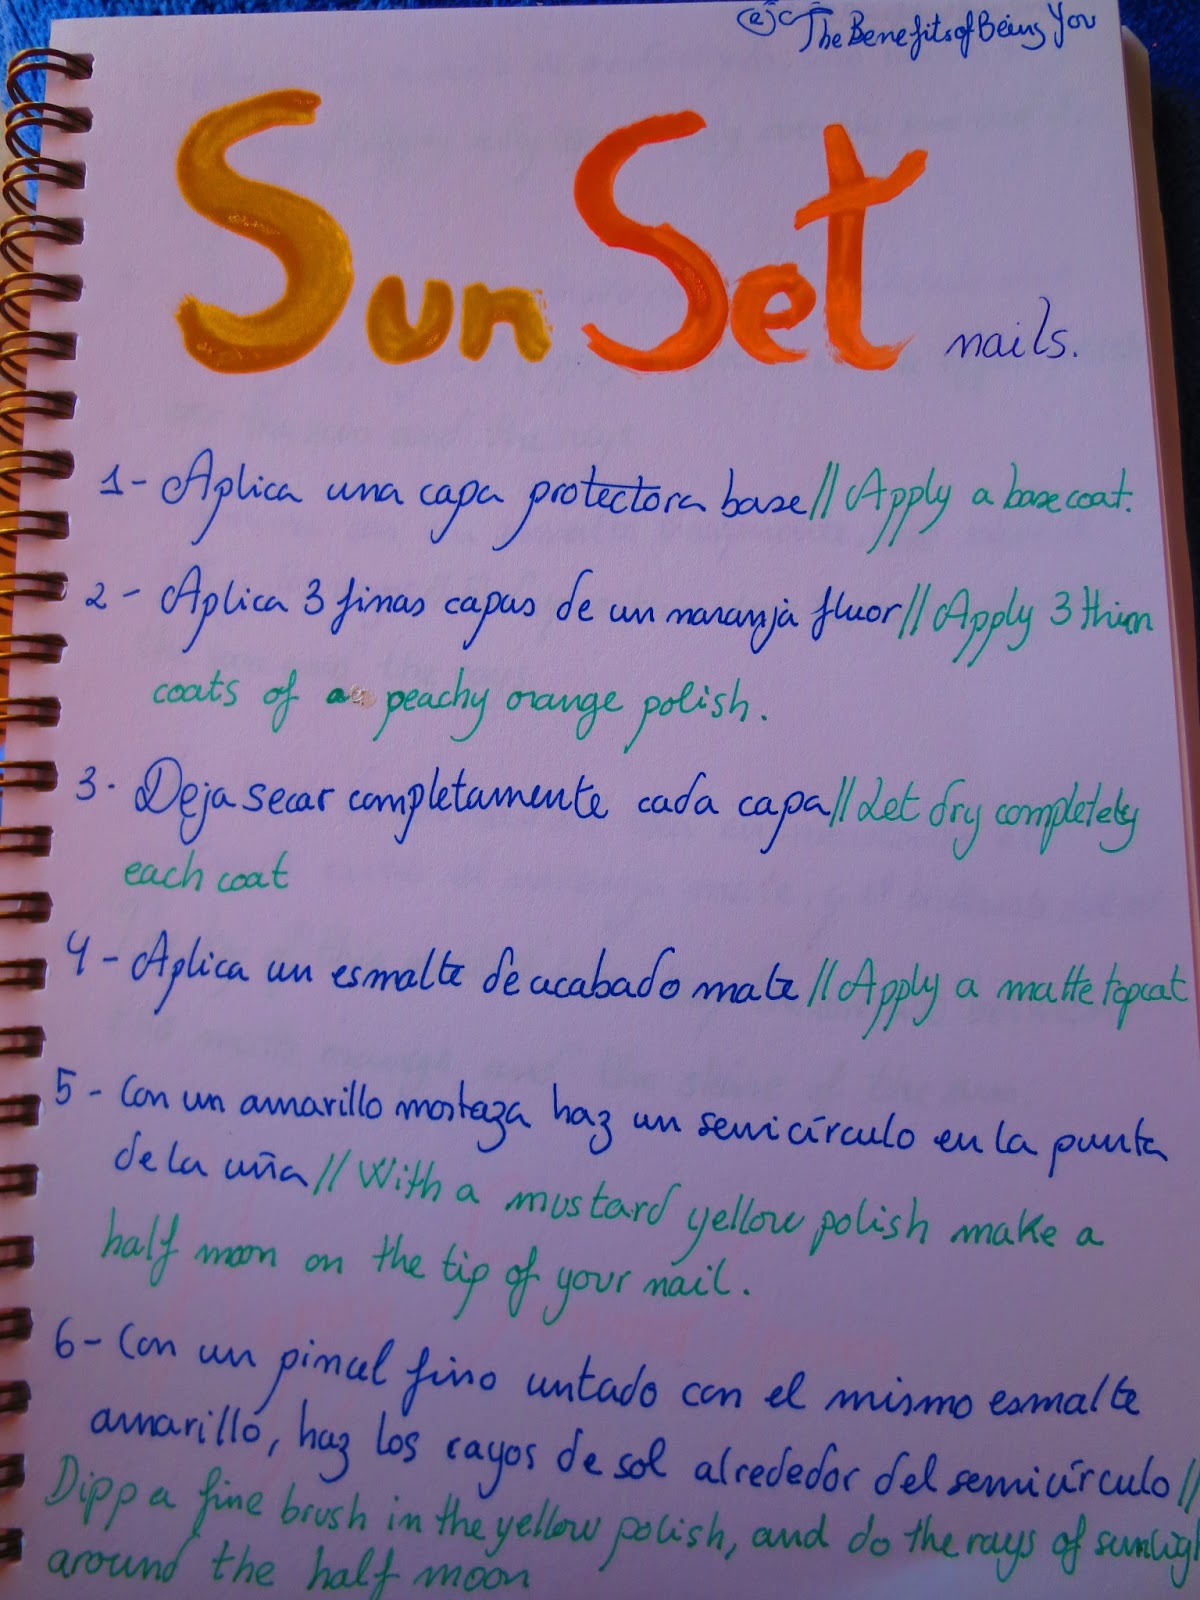 The Benefits of Being You
Sun Set nails.
1- Aplica una capa protectora base // Apply a base coat.
2- Aplica 3 finas capas de un naranja fluor // Apply 3 thin
coats of a peachy orange polish.
3- Deja secar completamente cada capa // Let dry completely
each coat
4- Aplica un esmalte de acabado mate // Apply a matte topcoat
5- Con un amarillo mostaza haz un semicírculo en la punta
de la uña // With a mustard yellow polish make a
half moon on the tip of your nail.
6- Con un pincel fino untado con el mismo esmalte
amarillo, haz los rayos de sol alrededor del semicírculo //
Dipp a fine brush in the yellow polish, and do the rays of sunligh
around the half moon